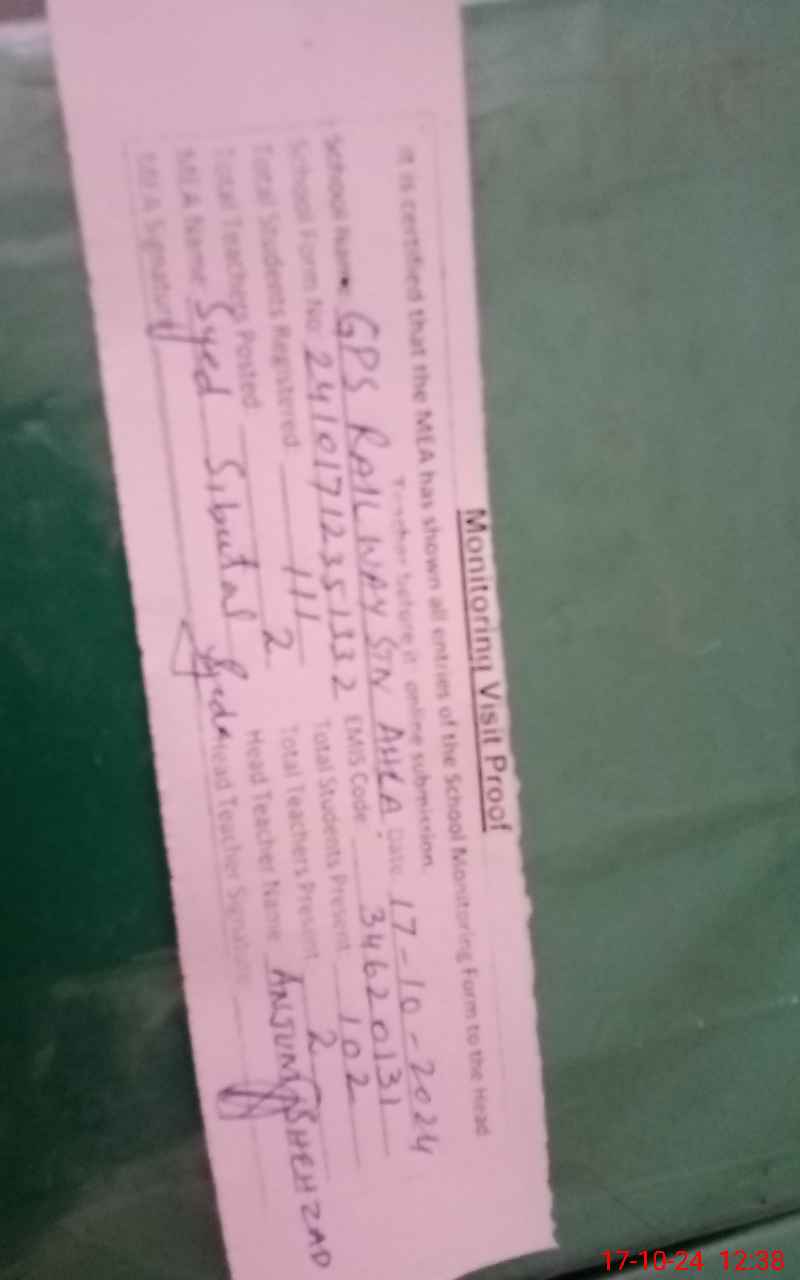 Monitoring Visit Proof
It is certified that the MEA has shown all entries of the School Monitoring Form to the Head
Teacher before it online submission.
School Name: GPS RAILWAY STN Date: 17-10-2024
School Form No: 24101712351332 EMIS Code: 34620131
Total Students Registered 111 Total Students Present 102
Total Teachers Posted 2 Total Teachers Present 2
MEA Name: Syed Head Teacher Name ANJUM SHEHZAD
MEA Signature Head Teacher Signature
17-10-24 12:38